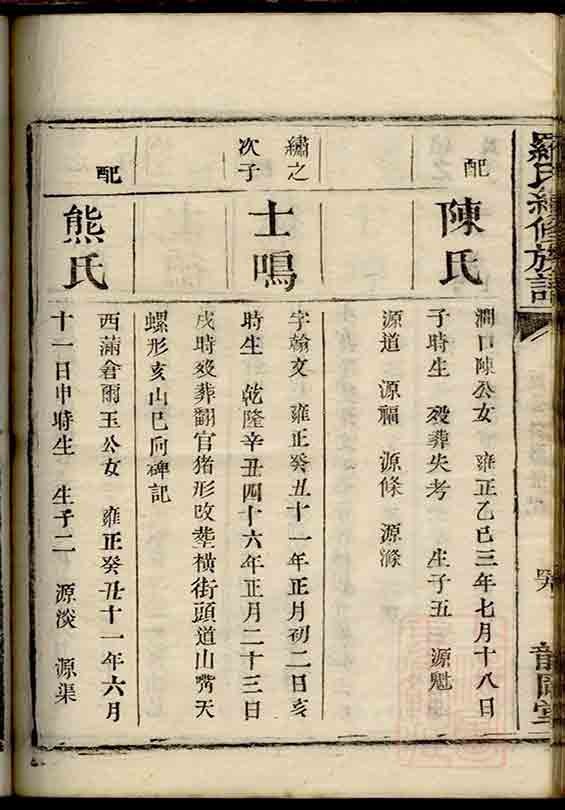 羅氏續修族譜
配
陳氏
澗口陳公女 雍正乙巳三年七月十八日
子時生 歿葬失考 生子五 源魁
源道 源福 源條 源滌
繡之
次子
士鳴
字翰文 雍正癸丑十一年正月初二日亥
時生 乾隆辛丑四十六年正月二十三日
戌時歿葬翻官猪形改塟橫街頭道山嘴天
螺形亥山巳向碑記
配
熊氏
西滿倉雨玉公女 雍正癸丑十一年六月
十一日申時生 生子二 源淡 源渠